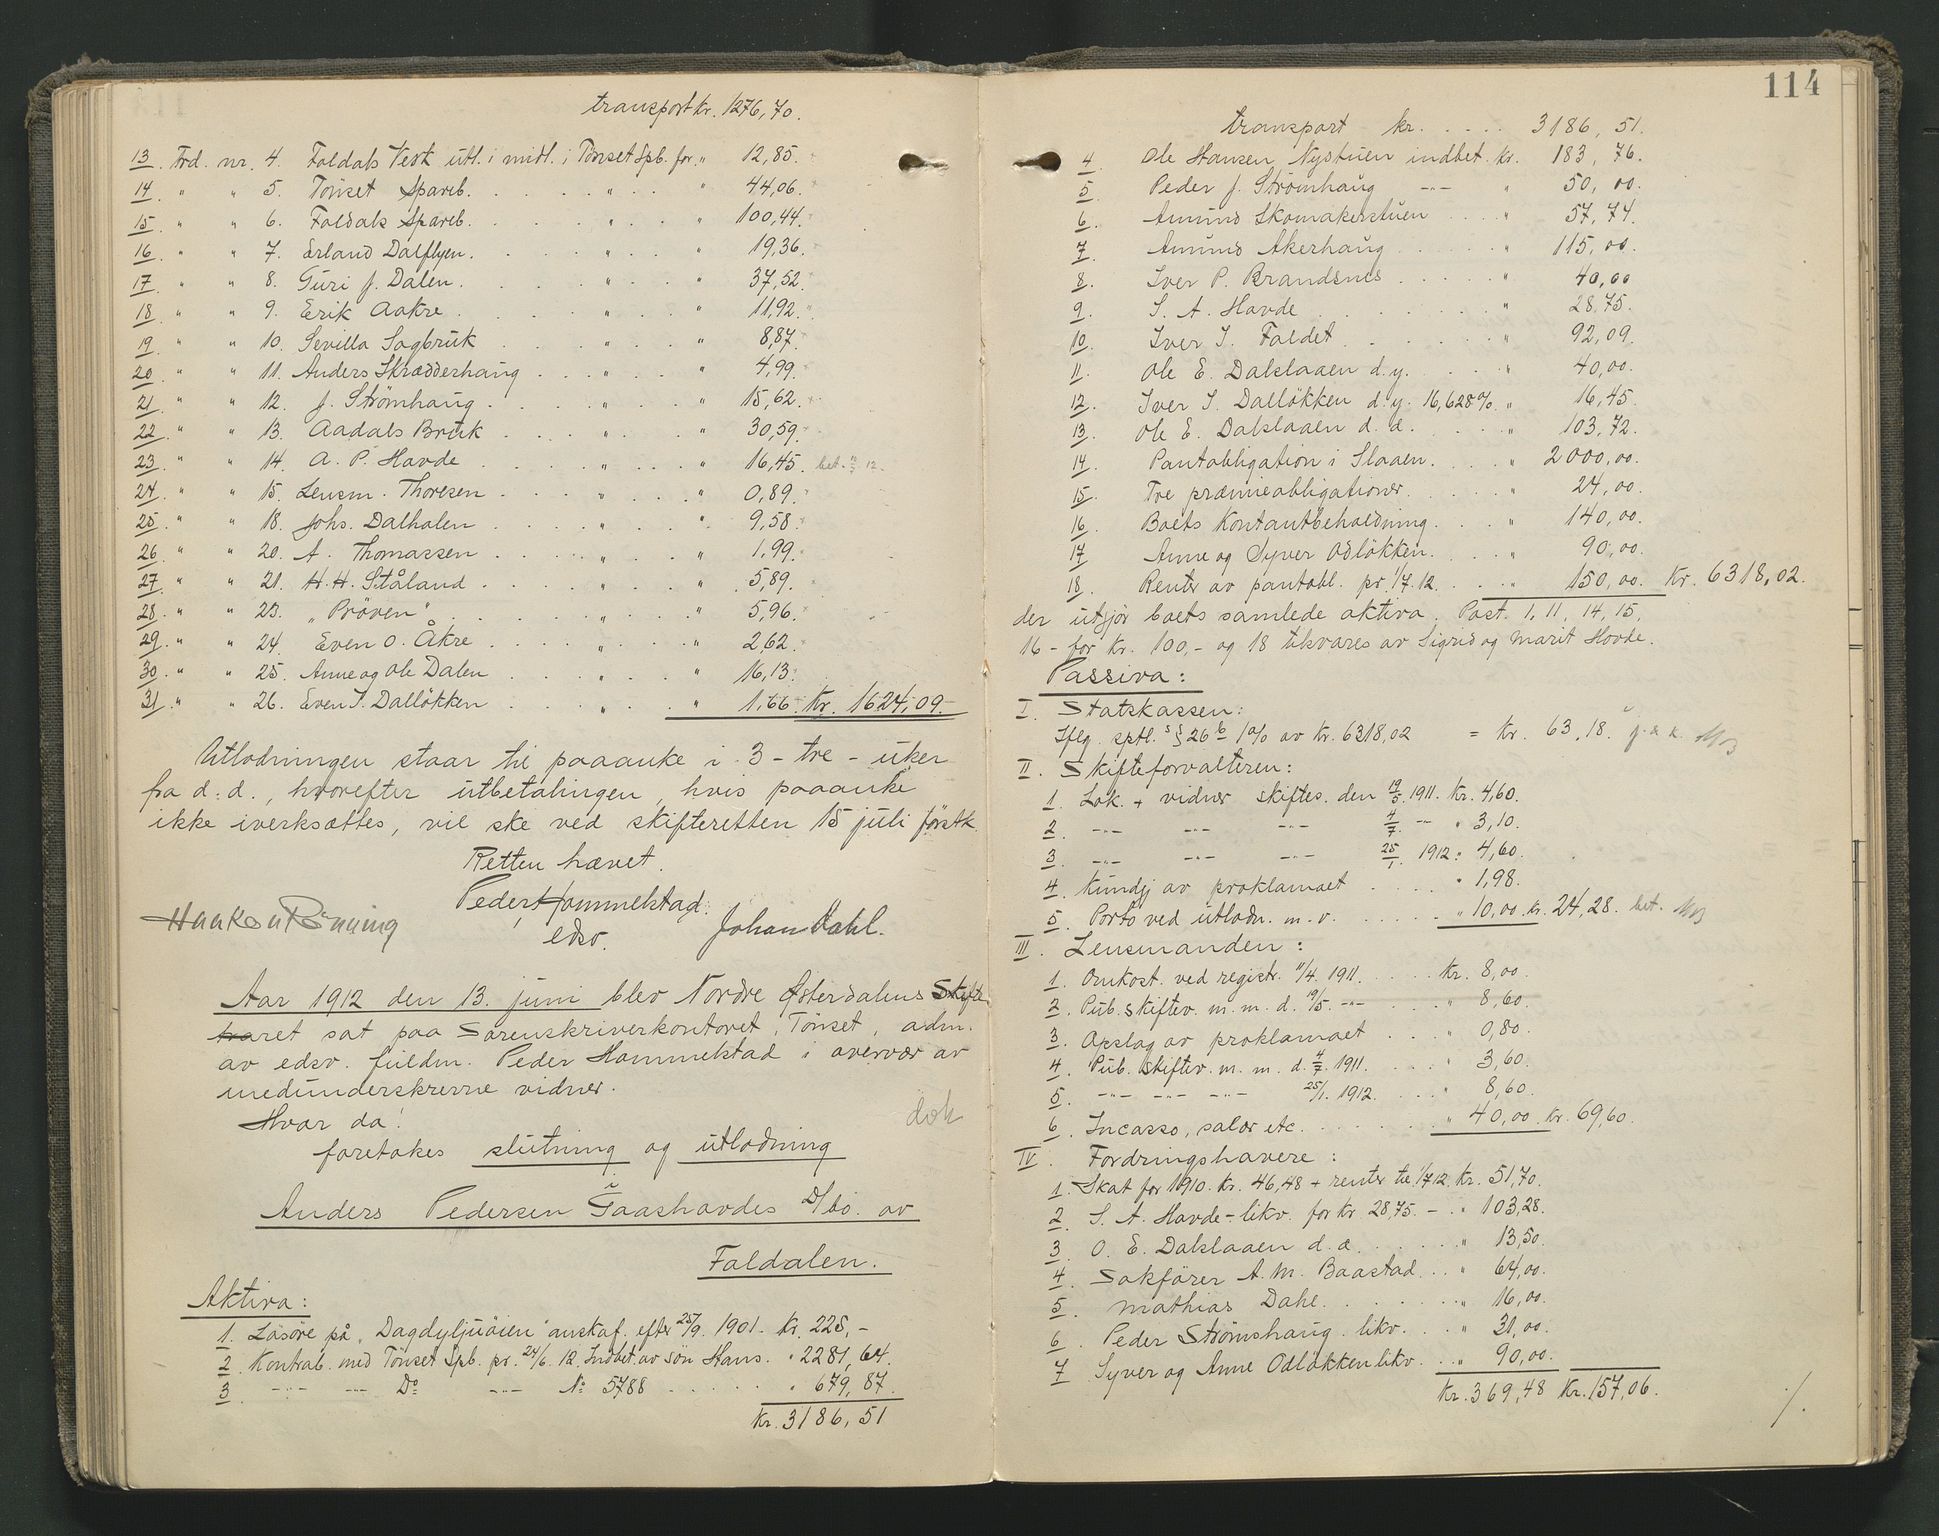 transport kr. 1276,70.
13. Frd. nr. 4. Foldals Verk utl. i midl. i Tönset Spb. for " 12,85.
14. " " 5. Tönset Spareb. . . . . " . . " 44,06.
15. " " 6. Foldals Spareb. . . . . " . . " 100,44.
16. " " 7. Erland Dalflyen. . . . . " . . " 19,36.
17. " " 8. Guri J. Dalen. . . . . " . . " 37,52.
18. " " 9. Erik Aakre . . . . . " . . " 11,92.
19. " " 10. Sevilla Sagbruk . . . . " . . " 8,87.
20. " " 11. Anders Skrædderhaug . . . " . . " 4,99.
21. " " 12. J. Strømhaug . . . . . " . . " 15,62.
22. " " 13. Aadals Bruk . . . . . " . . " 30,59.
23. " " 14. A. P. Hovde . . . . . " . . " 16,45. bet.
24. " " 15. Lensm. Thoresen . . . . " . . " 0,89.
25. " " 18. Johs. Dalhalen . . . . " . . " 9,58.
26. " " 20. A. Thomassen . . . . " . . " 1,99.
27. " " 21. H. H. Ståland . . . . " . . " 5,89.
28. " " 23. "Pröven" . . . . . " . . " 5,96.
29. " " 24. Even O. Åkre . . . . " . . " 2,62.
30. " " 25. Anne og Ole Dalen . . . " . . " 16,13.
31. " " 26. Even I. Dallökken . . . " . . " 1,66. Kr. 1624,09.
Utlodningen staar til paaanke i 3 - tre - uker
fra d. d., hvorefter utbetalingen, hvis paaanke
ikke iverksættes, vil ske ved skifteretten 15 juli förstk.
Retten hævet.
Peder Hommelstad.
edsv.
Haakon Rönning
Johan Dahl.
Aar 1912 den 13. juni blev Nordre Østerdalens Skifte
ret sat paa Sorenskriverkontoret, Tönset, adm.
av edsv. fuldm. Peder Hommelstad i overvær av
medunderskrevne vidner.
Hvor da!
foretokes slutning og utlodning
dok
Anders Pedersen Gaashovdes D/bo. av
Foldalen.
Aktiva:
1. Lösöre på "Dagdyljuöien" anskaf. efter 25/9. 1901. Kr. 225,-
2. Kontrab. med Tönset Spb. pr. 24/6. 12. Indbet. av sön Hans. " 2281,64.
3. -"- -"- Do -"- No 5788 . . . . . " 679,87.
Kr. 3186,51
114
transport kr. . . . . 3186,51.
4. Ole Hansen Nystuen indbet. kr. 183,76.
5. Peder J. Strömhaug -"- " 50,00.
6. Amund Skomakerstuen . . . . " 57,74.
7. Amund Akerhaug . . . . . " 115,00.
8. Iver P. Brandsnes . . . . " 40,00
9. S. A. Hovde . . . . . . " 28,75.
10. Iver I. Foldet . . . . . " 92,09.
11. Ole E. Dalslaaen d. y. . . . " 40,00.
12. Iver I. Dallökken d. y. 16,628% " 16,45.
13. Ole E. Dalslaaen d. æ. . . . " 103,72.
14. Pantobligation i Slaaen. . . . " 2000,00.
15. Tre præmieobligationer. . . . " 24,00.
16. Boets Kontantbeholdning. . . . " 140,00.
17. Anne og Syver Odlökken. . . . " 90,00.
18. Renter av pantobl. pr. 1/7. 12. . . " 150,00. Kr. 6318,02.
der utgjör boets samlede aktiva. Post. 1, 11, 14, 15,
16 - for kr. 100,- og 18 tilsvares av Sigrid og Marit Hovde.
Passiva:
I. Statskassen:
Iflg. sptl. § 26 b 1% av Kr. 6318,02 = Kr. 63,18.
II. Skifteforvalteren:
1. Lok. + vidner skiftes. den 19/5. 1911. Kr. 4,60.
2. -"- -"- -"- 4/7. -"- " 3,10.
3. -"- -"- -"- 25/1. 1912: " 4,60.
4. Kundgj. av proklamaet . . . . " 1,98.
5. Porto ved utlodn. m. v. . . . . " 10,00. kr. 24,28. bet.
III. Lensmanden:
1. Omkost. ved registr. 11/4. 1911. . . . Kr. 8,00.
2. Pub. skiftev. m. m. d. 19/5. -"- . . " 8,60.
3. Opslag av proklamaet . . . " 0,80.
4. Pub. skiftev. m. m. d. 4/7. 1911. . . . " 3,60.
5. -"- -"- -"- 25/1. 1912. . . . " 8,60.
6. Incasso, salær etc. . . . . . " 40,00. kr. 69,60.
IV. Fordringshavere:
1. Skat for 1910. Kr. 46,48 + renter til 1/7 12. Kr. 51,70.
2. S. A. Hovde - likv. for kr. 28,75. - . " 103,28.
3. O. E. Dalslaaen d. æ. . . . . " 13,50.
4. Sakförer A. M. Baastad . . . " 64,00.
5. Mathias Dahl. . . . . . " 16,00.
6. Peder Strömshaug likv. . . . " 31,00.
7. Syver og Anne Odlökken likv. . . " 90,00.
Kr. 369,48 Kr. 157,06.